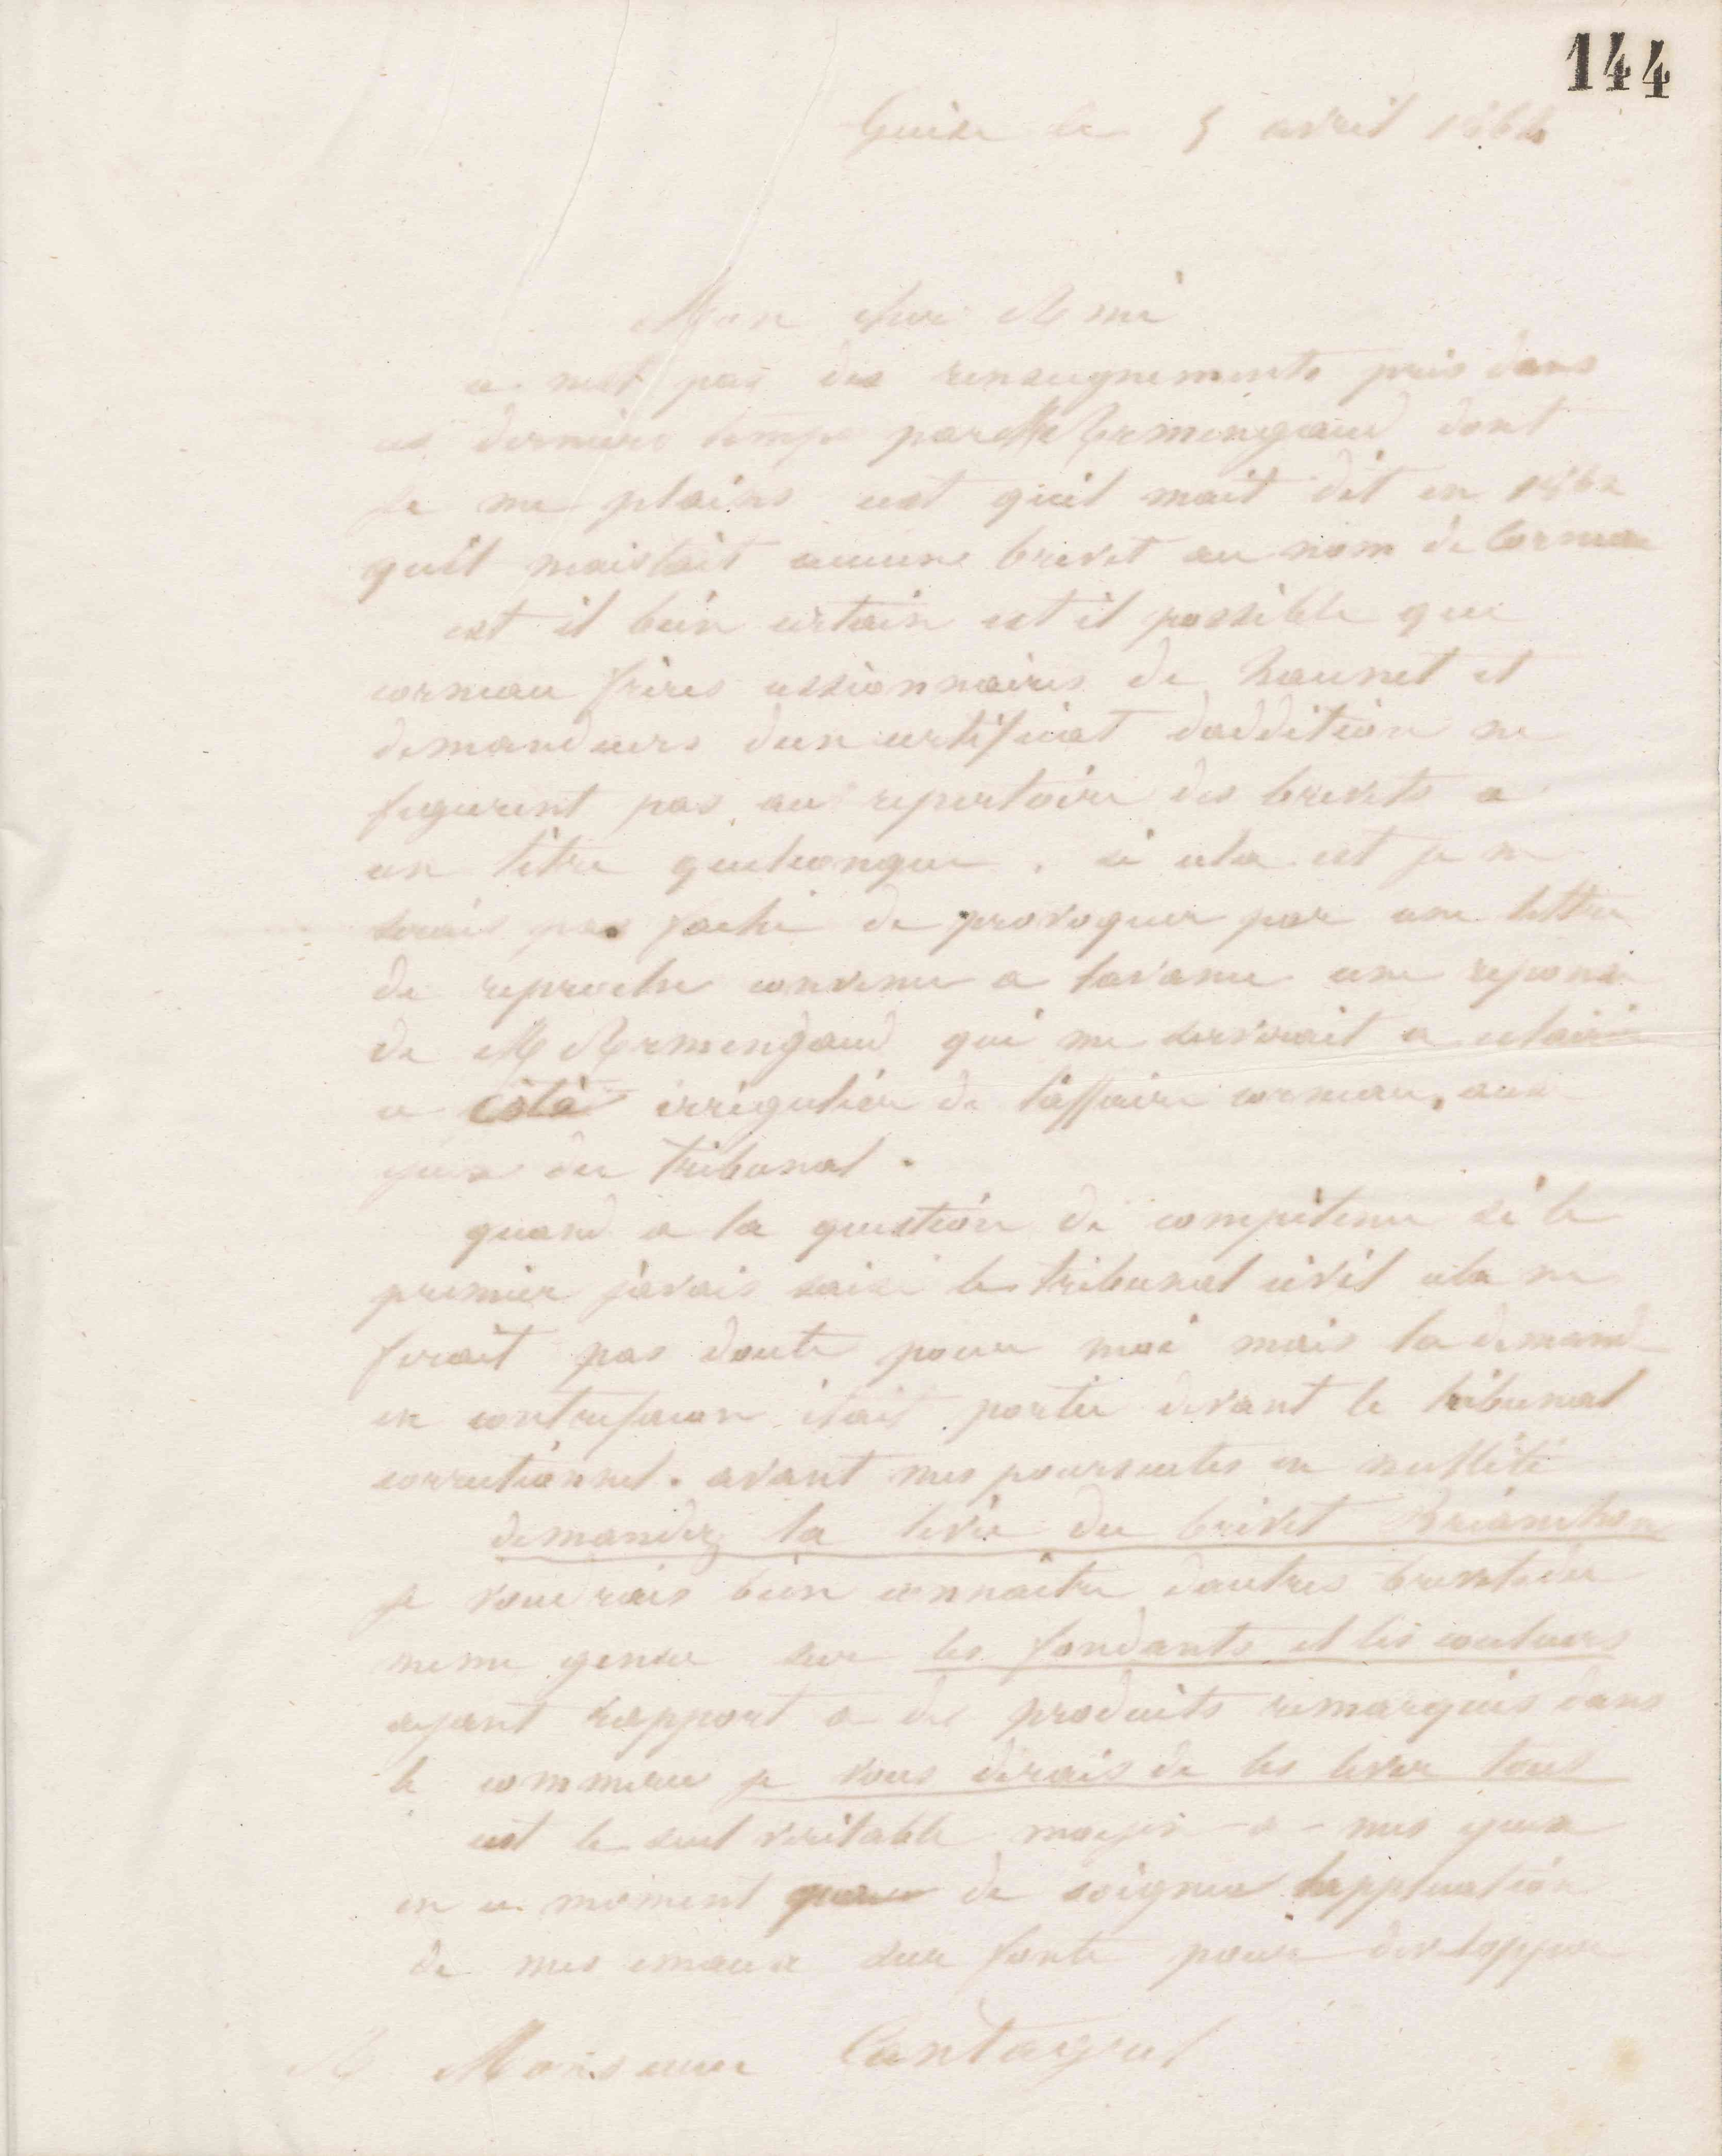 144
Guise le 5 avril 1864
Mon cher Ami
ce nest pas des renseignements pris dans
ces derniers temps par Mr Armengaud dont
je me plains cest quil mait dit en 1862
quil nexistait aucune brevet au nom de Corneau
est il bien certain est il possible que
corneau frères cessionnaires de Raunet et
demandeurs dun certificat daddition ne
figurent pas au repertoire des brevets a
un titre quelconque . si cela est je ne
serais pas faché de provoquer par une lettre
de reproche convenue a lavance une reponse
de M Armengaud qui me servirait a eclairer
ce côté irrégulier de l'affaire corneau, aux
yeux du tribunal .
quand a la question de compétence si le
premier j'avais saisi le tribunal civil cela ne
ferait pas doute pour moi mais la demande
en contrefacon était portée devant le tribunal
correctionnel . avant mes poursuites en nullité
demandez la levée du brevet Brianchon
je voudrais bien connaître dautres brevets du
meme genre sur les fondants et les couleurs
ayant rapport a des produits remarqués dans
le commerce je vous dirais de les lever tous
cest le seul veritable moyen - a - mes yeux
en ce moment de soigner lapplication
de mes emaux sur fonte pour developper
A Monsieur Cantagrel